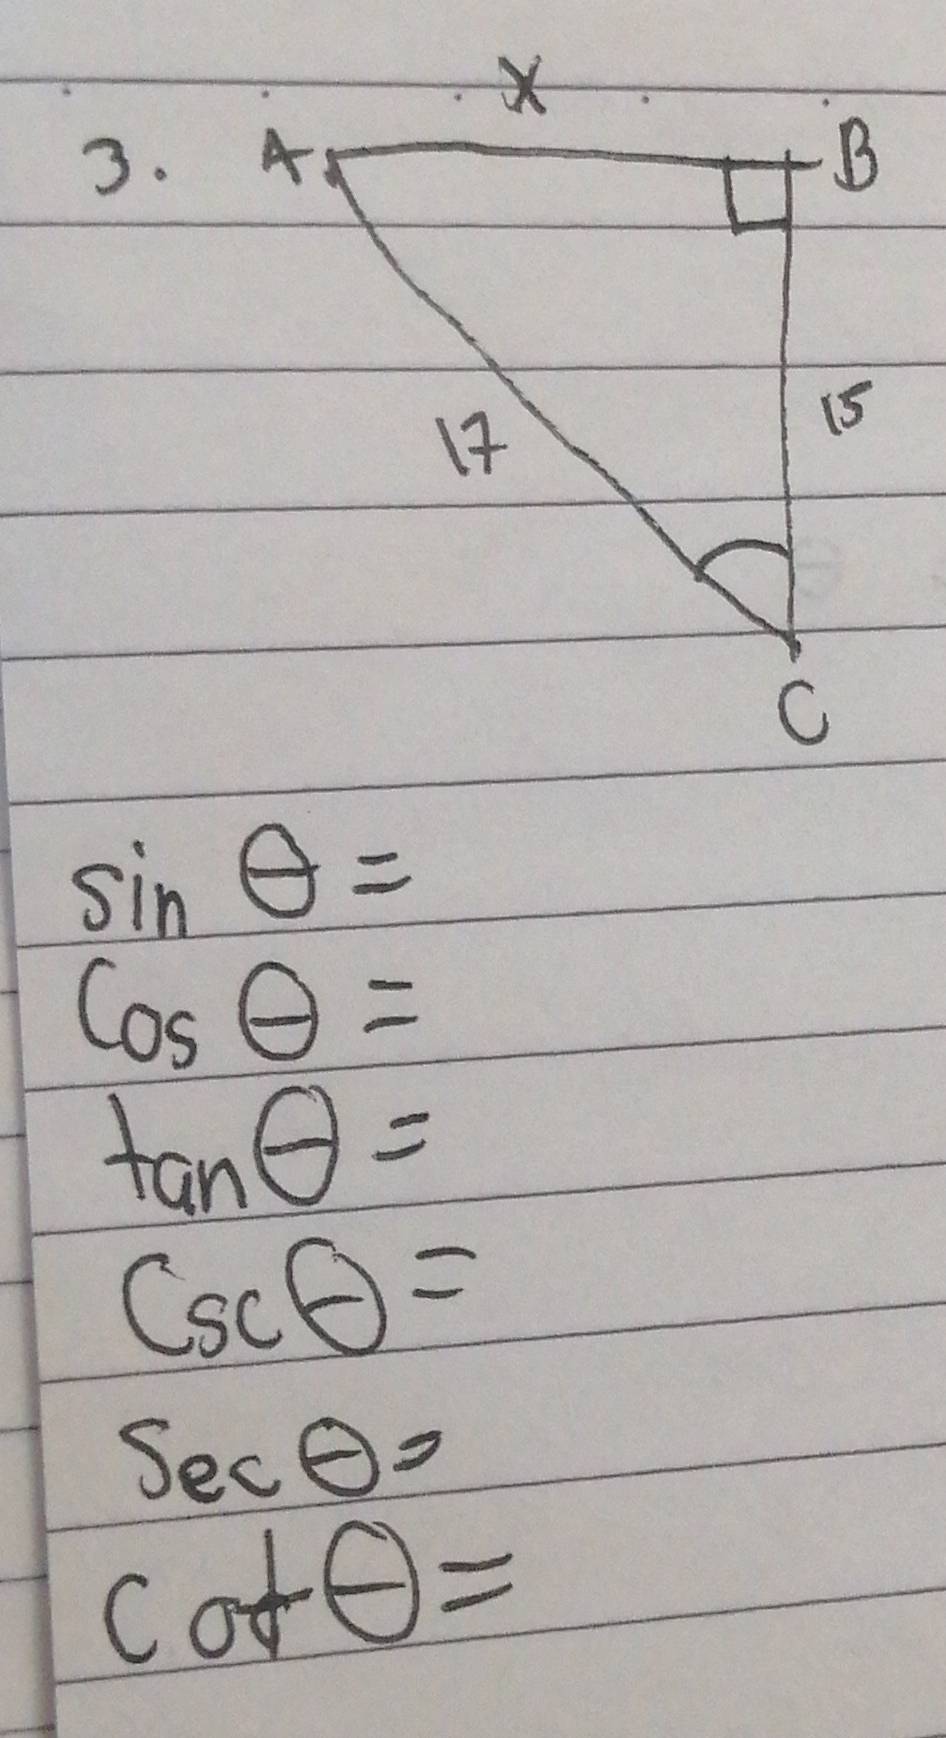 x
3. A B
17 15
C
sin θ =
Cos θ =
tan θ =
Csc θ =
Sec θ =
cot θ =